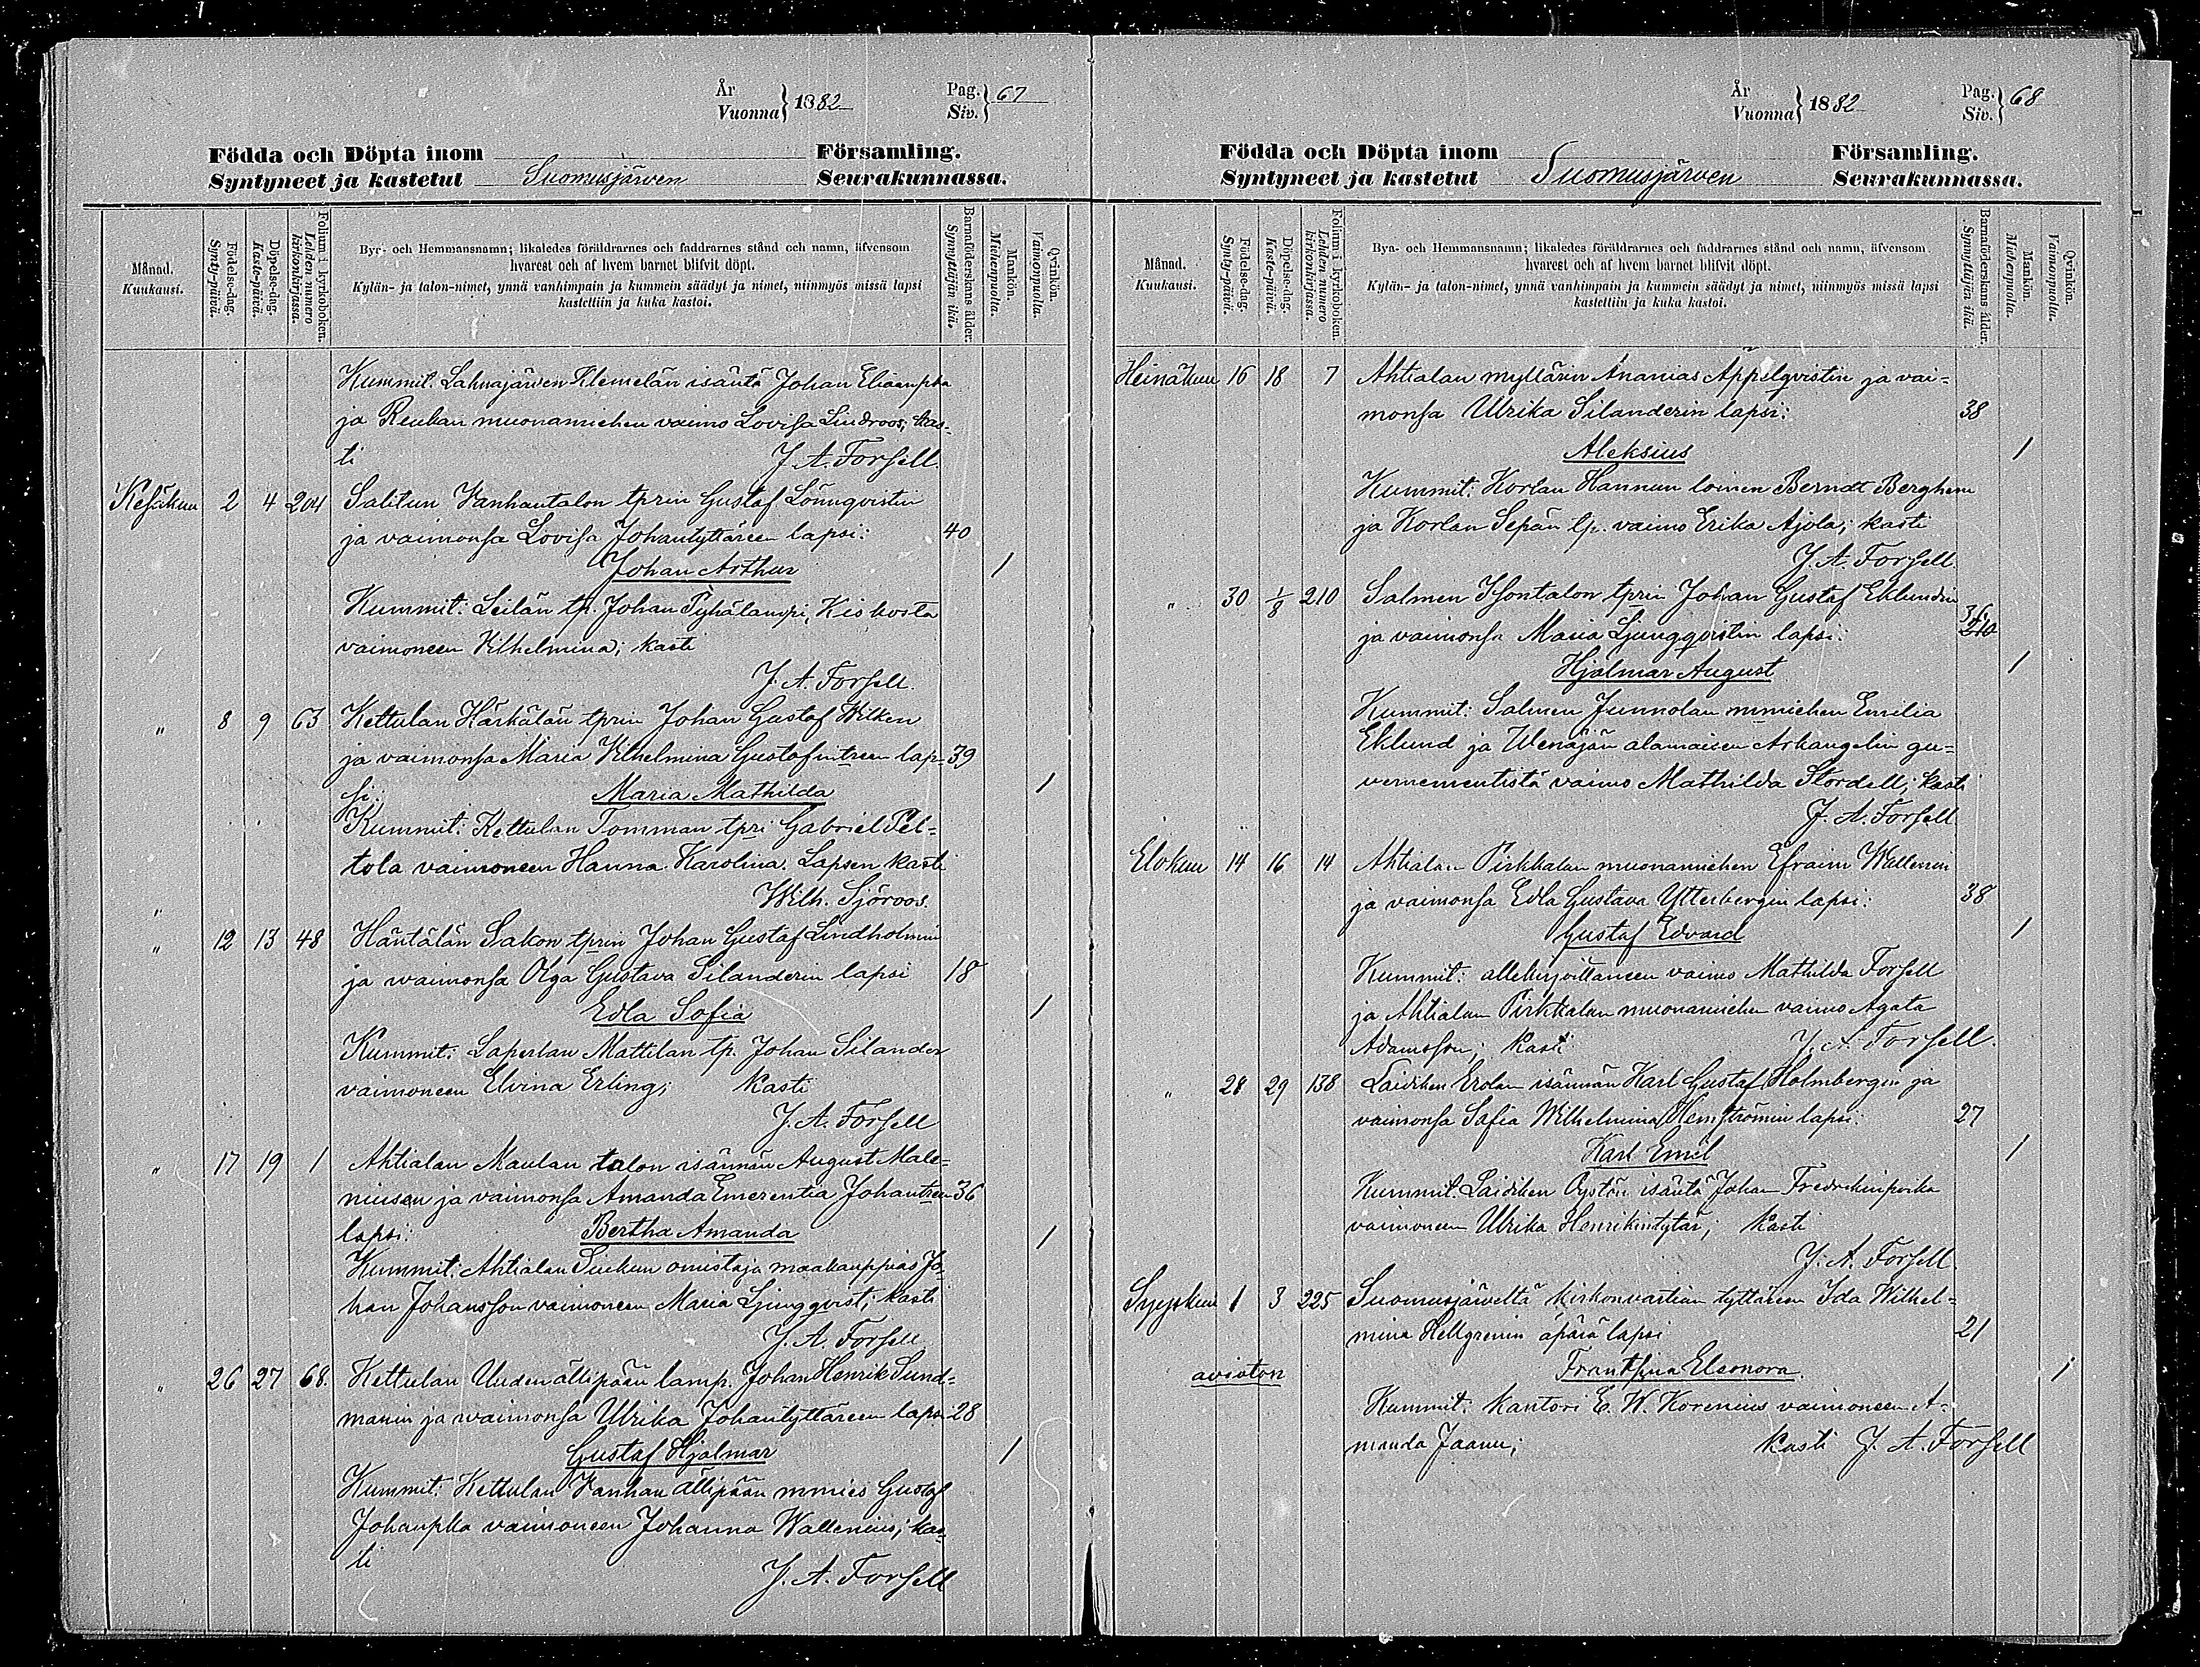 År
Vuonna } 1882
Pag.
Siv. } 67
Födda och Döpta inom Församling.
Syntyneet ja kastetut Suomusjärven Seurakunnassa.
Månad.
Kuukausi.
Födelse-dag.
Synty-päivä.
Döpelse-dag.
Kaste-päivä.
Folium i kyrkoboken.
Lehden numero kirkonkirjassa.
Bya- och Hemmansnamn; likaledes föräldrarnes och faddrarnes stånd och namn, äfvensom
hvarest och af hvem barnet blifvit döpt.
Kylän- ja talon-nimet, ynnä vanhimpain ja kummein säädyt ja nimet, niinmyös missä lapsi
kastettiin ja kuka kastoi.
Barnaföderskans ålder.
Synnyttäjän ikä.
Mankön.
Miehenpuolia.
Qvinkön.
Vaimonpuolia.
Kummit: Lahnajärven Klemelän isäntä Johan Elianpka
ja Reukan muonamiehen vaimo Lovisa Lindroos; kas-
ti J. A. Forsell.
Kesäkuu 2 4 204 Salitun Vanhantalon tprin Gustaf Lönnqvistin
ja vaimonsa Lovisa Johantyttären lapsi: 40
Johan Arthur 1
Kummit: Leilän tp. Johan Pyhälampi, Kiskosta
vaimoneen Vilhelmina; kasti
J. A. Forsell.
" 8 9 63 Kettulan Härkälän tprin Johan Gustaf Wilken
ja vaimonsa Maria Vilhelmina Gustafintreen lap- 39
si: Maria Mathilda 1
Kummit: Kettulan Tomman tpri Gabriel Pel-
tola vaimoneen Hanna Karolina. Lapsen kasti
" Wilh. Sjöroos.
" 12 13 48 Häntälän Sakon tprin Johan Gustaf Lindholmin
ja waimonsa Olga Gustava Silanderin lapsi 18
Edla Sofia 1
Kummit: Laperlan Mattilan tp. Johan Silander
vaimoneen Elvina Erling; kasti
J. A. Forsell
" 17 19 1 Ahtialan Maulan talon isännän August Male-
niusen ja vaimonsa Amanda Emerentia Johantreen 36
lapsi: Bertha Amanda 1
Kummit: Ahtialan omistaja maakauppias Jo-
han Johansson vaimoneen Maria Ljungqvist; kasti
J. A. Forsell
" 26 27 68. Kettulan Uudenällipään lamp. Johan Henrik Sund-
manin ja waimonsa Ulrika Johantyttäreen lapsi 28
Gustaf Hjalmar 1
Kummit: Kettulan Vanhan ällipään mmies Gustaf
Johanpka vaimoneen Johanna Wallenius; kas-
ti
J. A. Forsell
År
Vuonna } 1882
Pag.
Siv. } 68
Födda och Döpta inom Församling.
Syntyneet ja kastetut Suomusjärven Seurakunnassa.
Månad.
Kuukausi.
Födelse-dag.
Synty-päivä.
Döpelse-dag.
Kaste-päivä.
Folium i kyrkoboken.
Lehden numero kirkonkirjassa.
Bya- och Hemmansnamn; likaledes föräldrarnes och faddrarnes stånd och namn, äfvensom
hvarest och af hvem barnet blifvit döpt.
Kylän- ja talon-nimet, ynnä vanhimpain ja kummein säädyt ja nimet, niinmyös missä lapsi
kastettiin ja kuka kastoi.
Barnaföderskans ålder.
Synnyttäjän ikä.
Mankön.
Miehenpuolia.
Qvinkön.
Vaimonpuolia.
Heinäkuu 16 18 7 Ahtialan myllärin Ananias Appelqvistin ja vai-
monsa Ulrika Silanderin lapsi: 38
Aleksius 1
Kummit: Korlan Hannun loinen Berndt Berghem
ja Korlan Sepän tp. vaimo Erika Ajola; kasti
J. A. Forsell
" 30 1/8 210 Salmen Isontalon tprin Johan Gustaf Eklundin
ja vaimonsa Maria Ljungqvistin lapsi: 36
Hjalmar August 1
Kummit: Salmen Junnolan mmiehen Emilia
Eklund ja Wenäjän alamaisen Arkangelin gu-
vernementistä vaimo Mathilda Stordell; kasti
J. A. Forsell
Elokuu 14 16 14 Ahtialan Pirkkalan muonamiehen Efraim Wallenin
ja vaimonsa Edla Gustava Ytterbergin lapsi: 38
Gustaf Edvard 1
Kummit: allekirjoittaneen vaimo Mathilda Forsell
ja Ahtialan Pirkkalan muonamiehen vaimo Agata
Adamsson; kasti J. A. Forsell.
" 28 29 138 Laidiken Erolan isännän Karl Gustaf Holmbergin ja
vaimonsa Sofia Wilhelmina Hemströmin lapsi: 27
Karl Emil 1
Kummit: Laidiken isäntä Johan Fredrikinpoika
vaimoneen Ulrika Henrikintytär; kasti
J. A. Forsell.
Syyskuu 1 3 225 Suomusjärveltä kirkonvartian tyttären Ida Wilhel-
mina Hellgrenin äpärä lapsi 21
avioton Frantsina Eleonora. 1
Kummit: kantori E. W. Korenius vaimoneen A-
manda Jaanu; kasti J. A. Forsell